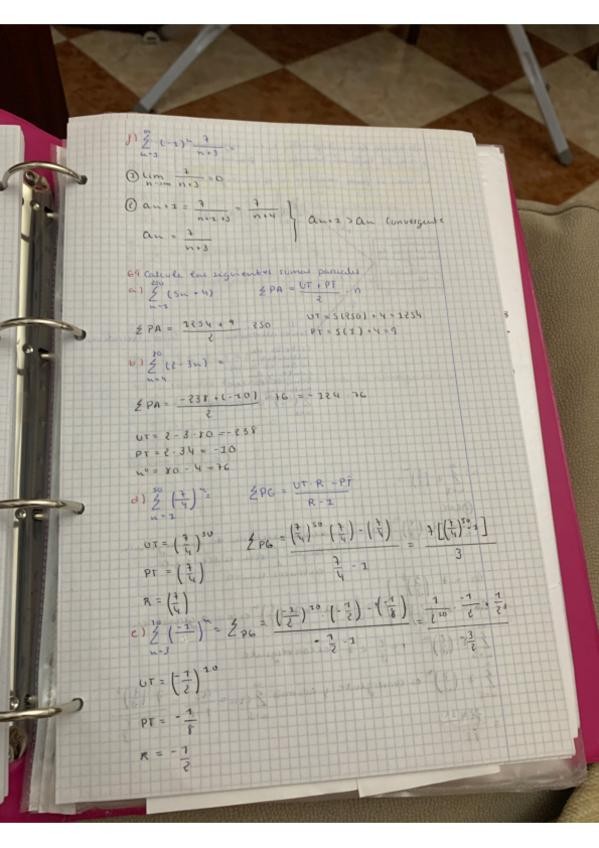 f) ∞ Σ n=1 (-1)ⁿ 7/(n+3) =
① lim n→∞ 7/(n+3) = 0
② an+1 = 7/(n+1+3) = 7/(n+4)
an = 7/(n+3) } an+1 > an Convergente
64 Calcula las siguientes sumas parciales
a) 250 Σ n=1 (5n+4) ΣPA = (UT+PT)/2 · n
ΣPA = (1254+9)/2 · 250 UT = 5(250)+4 = 1254
PT = 5(1)+4 = 9
b) 80 Σ n=4 (2-3n) =
ΣPA = (-238+(-10))/2 · 76 = -124 · 76
UT = 2-3·80 = -238
PT = 2-3·4 = -10
nº = 80-4 = 76
d) Σ n=1 (7/4)ⁿ = ΣPG = (UT·R-PT)/(R-1)
UT = (7/4)³⁰ ΣPG = ((7/4)³⁰ (7/4) - (7/4))/(7/4 - 1) = 7[(7/4)³⁰ - 1]/3
PT = (7/4)
R = (7/4)
e) 10 Σ n=3 (-1/2)ⁿ = ΣPG = ((-1/2)¹⁰ · (-1/2) - (-1/8))/(-1/2 - 1) = (1/2¹⁰ · -1/2 + 1/2³)/(-3/2)
UT = (-1/2)¹⁰
PT = -1/8
R = -1/2